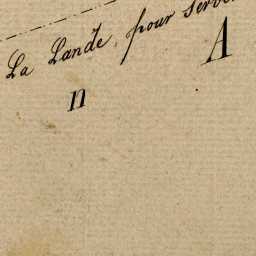 La Lande, pour serv
A
n